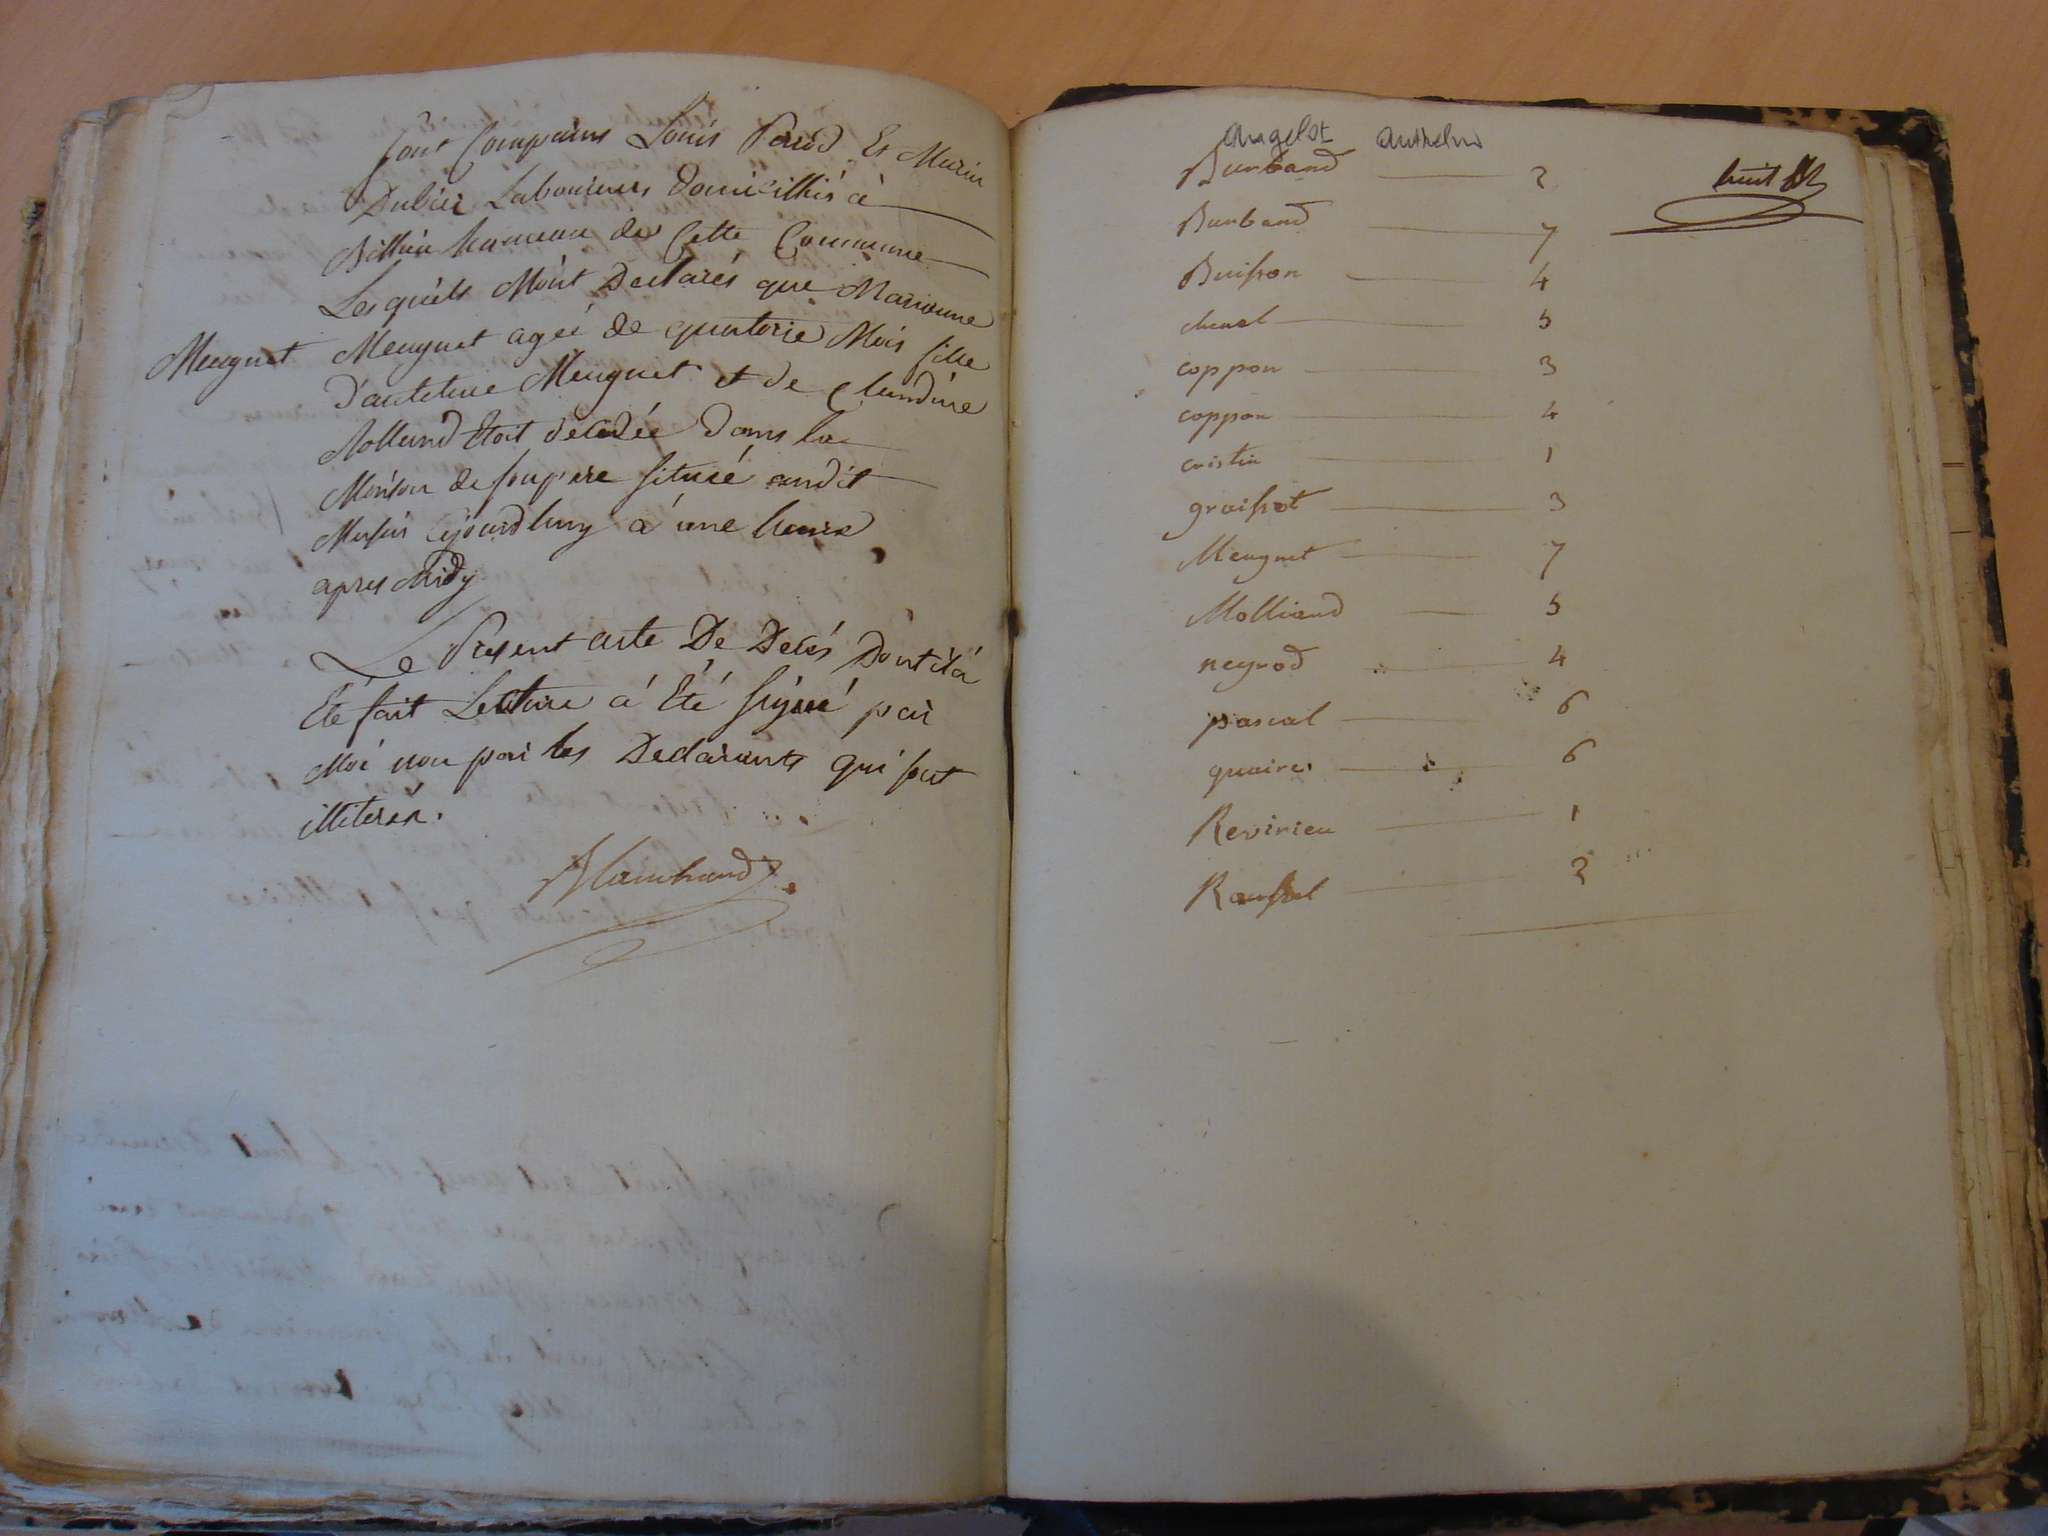 sont Comparus Louis Perod Et Marin
Dubier Laboureurs domicilliés à
hameau de Cette Commune
Lesquels M'ont Declarés que Marianne
Meugnet
Meugnet agée de quatorze Mois fille
D'anteleme Meugnet et de Claudine
Molland Etoit décédée dans la
Maison de son pere située audit
cejourdhuy à une heure
apres Midy
Le Present acte De Decés Dont il a
Eté fait Lecture à Eté signé par
Moi non par les Declarants qui sont
illiterés.
Marchand
Angelot Anthelme
Burband 2
huit
Burband 7
Buisson 4
cheval 5
coppon 3
coppon 4
cristin 1
graissot 3
Meugnet 7
Molliand 5
neyrod 4
pascal 6
quaires 6
Revirieu 1
Roussel 2